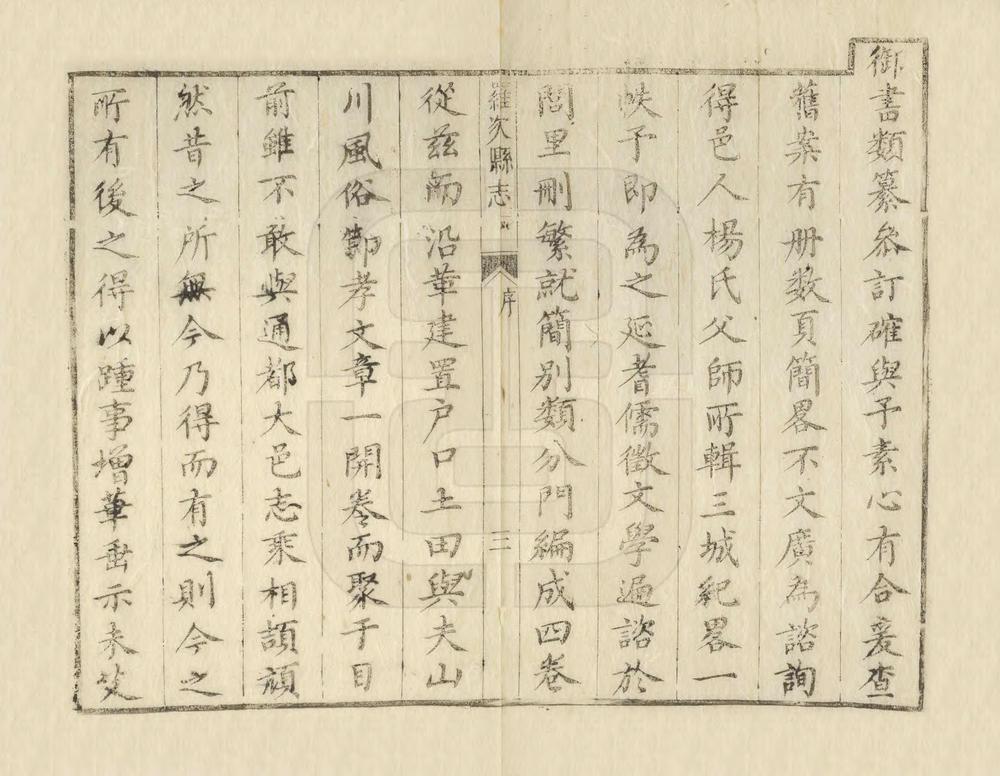 御書類纂叅訂確與予素心有合爰查
舊案有册数頁簡畧不文廣為諮詢
得邑人楊氏父師所輯三城紀畧一
帙予即為之延耆儒徵文學遍諮於
閭里刪繁就簡別類分門編成四卷
羅次縣志 序 三
從茲而沿革建置户口土田與夫山
川風俗節孝文章一開卷而聚于目
前雖不敢與通都大邑志乘相頡頏
然昔之所無今乃得而有之則今之
所有後之得以踵事增華垂示未艾